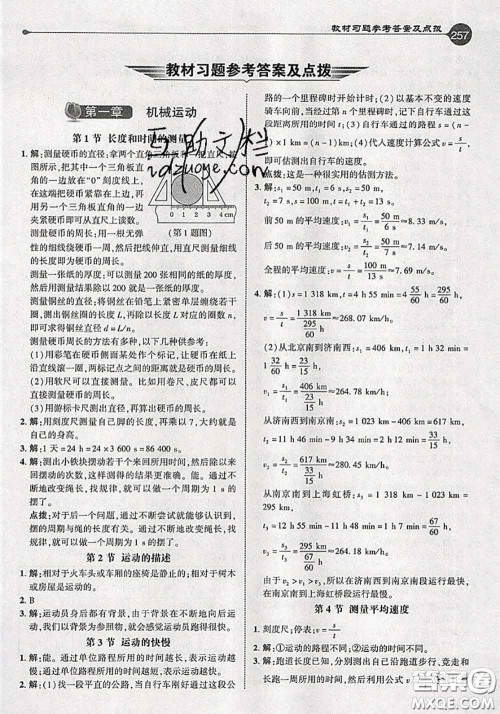 教材习题参考答案及点拨
257
教材习题参考答案及点拨
第一章 机械运动
第1节 长度和时间的测量
1. 解:测量硬币的直径:拿两个直角三角板和一把直尺,如
图所示,把其中一个三角板直
角的一边放在“0”刻度线上,
直角的另一边紧靠在硬币上,再
用另一个三角板直角的一边
夹紧硬币即可从直尺上读数。
测量硬币的周长:用一根无弹
(第1题图)
性的细线绕硬币一周,然后把线伸直,用直尺测量细线的
长度即为硬币的周长。
测量一张纸的厚度:可以测出200张相同纸的厚度,然
后用测量结果除以200就可以了。
测量铜丝的直径:将铜丝在铅笔上紧密穿层缠绕若干
圈,测出铜丝圈的长度L,再除以长度L对应的圈数n,
即可求得铜丝的直径d=L/n。
测量硬币周长的方法有多种,以下几种供参考:
(1)用彩笔在硬币侧面某处作个标记,让硬币在纸上沿
沿直线滚一圈,两标记点之间的距离就是硬币的周长。
(2)用软尺可以直接测量。比如用卷尺、皮尺等工具直
接测量硬币的周长。
(3)用游标卡尺测出直径,再算出硬币的周长。
2. 解:用刻度尺测量自己步长,再除以7,大约就是
自己的身高。
3. 解:1天=24 h=24×3 600 s=86 400 s。
4. 解:测出小铁块摆动若干个来回所用的时间,然后除以来
回摆动的次数,这样测得的结果误差会小一些。能。通过不
断地改变绳长,找规律,就可以做一个周期为1 s的
摆了。
点拨:对于后一个问题,通过不断尝试可以发现摆动的
周期与绳的长度有关。通过不断地改变绳长,寻找规
律,我们就可以做一个周期为1 s的摆了。
第2节 运动的描述
1. 解:相对于火车头或车厢的座椅是静止的;相对于树木
或房屋是运动的。
2. B
3. 解:运动员身后如有背景,由于背景在不断地向后运
动,我们就会感觉运动员跑得很快。
第3节 运动的快慢
1. 解:能。通过单位路程所用的时间长,表示运动越
慢;通过单位路程所用的时间越短,表示运动越快。
2. 解:(1)找一段平直的公路,当自行车刚好通过公路
路的一个里程碑时开始计时;(2)以基本不变的速度
骑车向前,当行驶到第n个里程碑时,测出自行车通过这
段距离所用的时间t;(3)自行车通过的路程s=(n-
1)×1 km=(n-1) km;(4)代入速度计算公式v=s/t,
即可估测出自行车的速度。
点拨:这是一种很实用的估测方法。
3. 解:s₁=50 m,t₁=6 s,s₂=50 m,
t₂=7 s,s=100 m,t=13 s,
前50 m的平均速度:v₁=s₁/t₁=50 m/6 s≈8.33 m/s,
后50 m的平均速度:v₂=s₂/t₂=50 m/7 s≈7.14 m/s,
全程的平均速度:v=s/t=100 m/13 s≈7.69 m/s。
4. 解:(1)s=1 318 km,t=4 h 55 min=4 55/60 h,
v=s/t=1 318 km/(4 55/60 h)≈268 km/h。
(2)从北京南到济南西:s₁=406 km,t₁=1 h 32 min=1
32/60 h=23/15 h,
v₁=s₁/t₁=406 km/(23/15 h)≈264.78 km/h;
从济南西到南京南:s₂=1 023 km-406 km=617 km,
t₂=2 h 12 min=2 12/60 h=
v₂=s₂/t₂=617 km/ ≈280.45 km/h,
从南京南到上海虹桥:s₃=1 318 km-1 023 km=295 km,
t₃=1 h 7 min=67/60 h,
v₃=s₃/t₃=295 km/(67/60 h)≈264.18 km/h。
由于v₂>v₁>v₃,所以在济南西到南京南运行最快,
在南京南到上海虹桥段运行最慢。
第4节 测量平均速度
1. 刻度尺;停表;v=s/t
2. 解:①运动的路程不同;②运动的时间不同。
3. 解:跑道长度已知,当自己沿跑道跑步时,行走或竞走
长跑一周所用的时间,然后利用公式v=